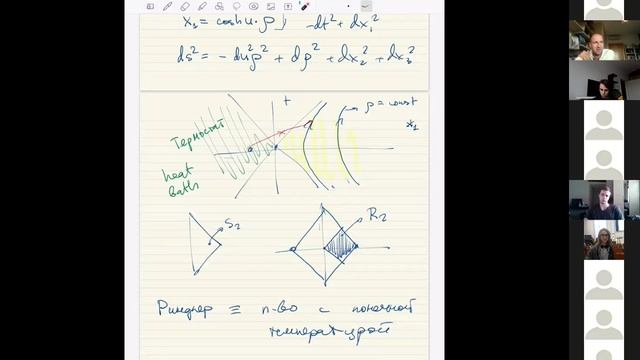 x₁ = cosh u · ρ } -dt² + dx₁²
ds² = - du² ρ² + dρ² + dx₂² + dx₃²
t
ρ = const
x₁
Термостат
heat
baths
S₂
R₂
Риндлер ≡ п-во с конечной
температурой